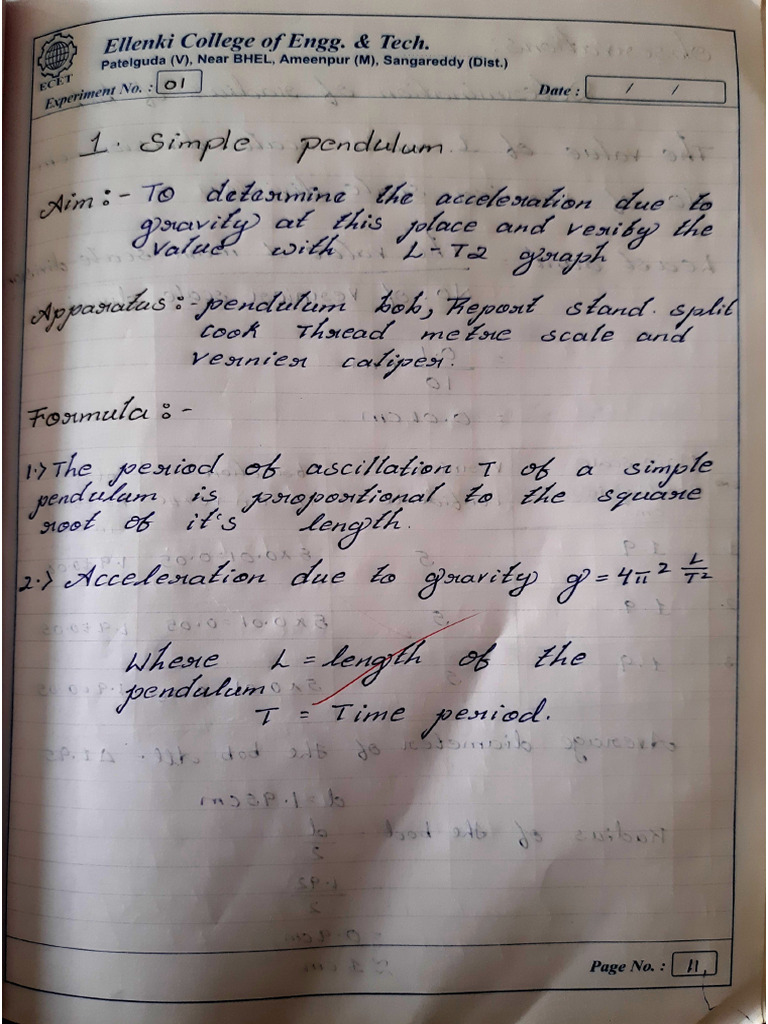 Ellenki College of Engg. & Tech.
Patelguda (V), Near BHEL, Ameenpur (M), Sangareddy (Dist.)
ECET
Experiment No. : 01
Date : / /
1. Simple pendulum.
Aim :- To determine the acceleration due to
gravity at this place and verify the
value with L-T2 graph
Apparatus :- pendulum bob, Report stand. split
cook Thread metre scale and
vernier caliper.
Formula :-
1.> The period of ascillation T of a simple
pendulum is proportional to the square
root of it's length.
2.> Acceleration due to gravity g = 4π² L/T2
Where L = length of the
pendulum
T = Time period.
Page No. : 11